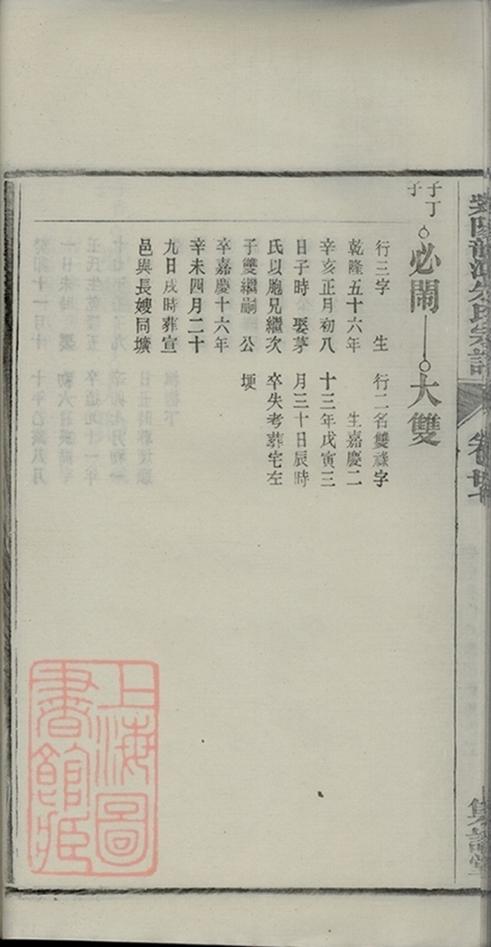 子丁
子
必鬧
行三字　生
乾隆五十六年
辛亥正月初八
日子時　娶茅
氏以胞兄繼次
子雙繼嗣　公
卒嘉慶十六年
辛未四月二十
九日戌時葬宣
邑與長嫂同壙
大雙
行二名雙祿字
生嘉慶二
十三年戊寅三
月三十日辰時
卒失考葬宅左
埂
上海圖
書館藏